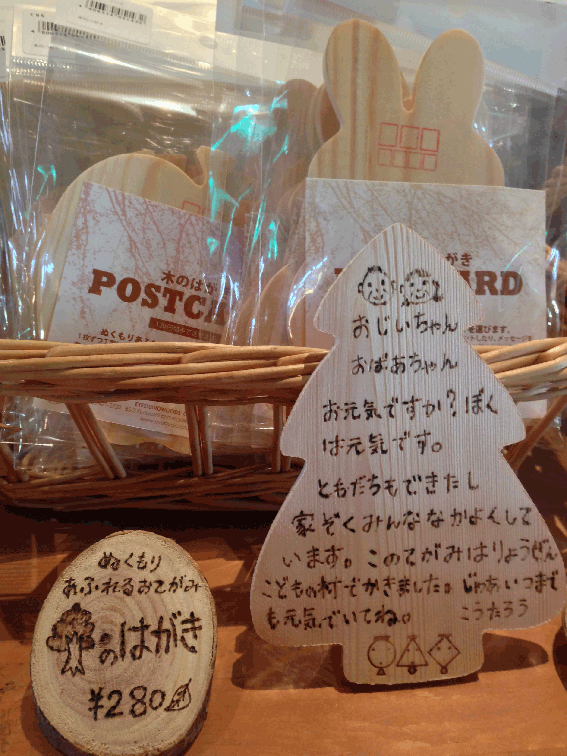 木のはが
POSTC
がき
RD
を選びます。
おじいちゃん
おばあちゃん
お元気ですか？ぼく
は元気です。
ともだちもできたし
家ぞくみんななかよくして
います。このてがみはりょうぜん
こどもの村でかきました。じゃあいつまで
も元気でいてね。 こうたろう
ぬくもり
あふれるおてがみ
のはがき
¥280